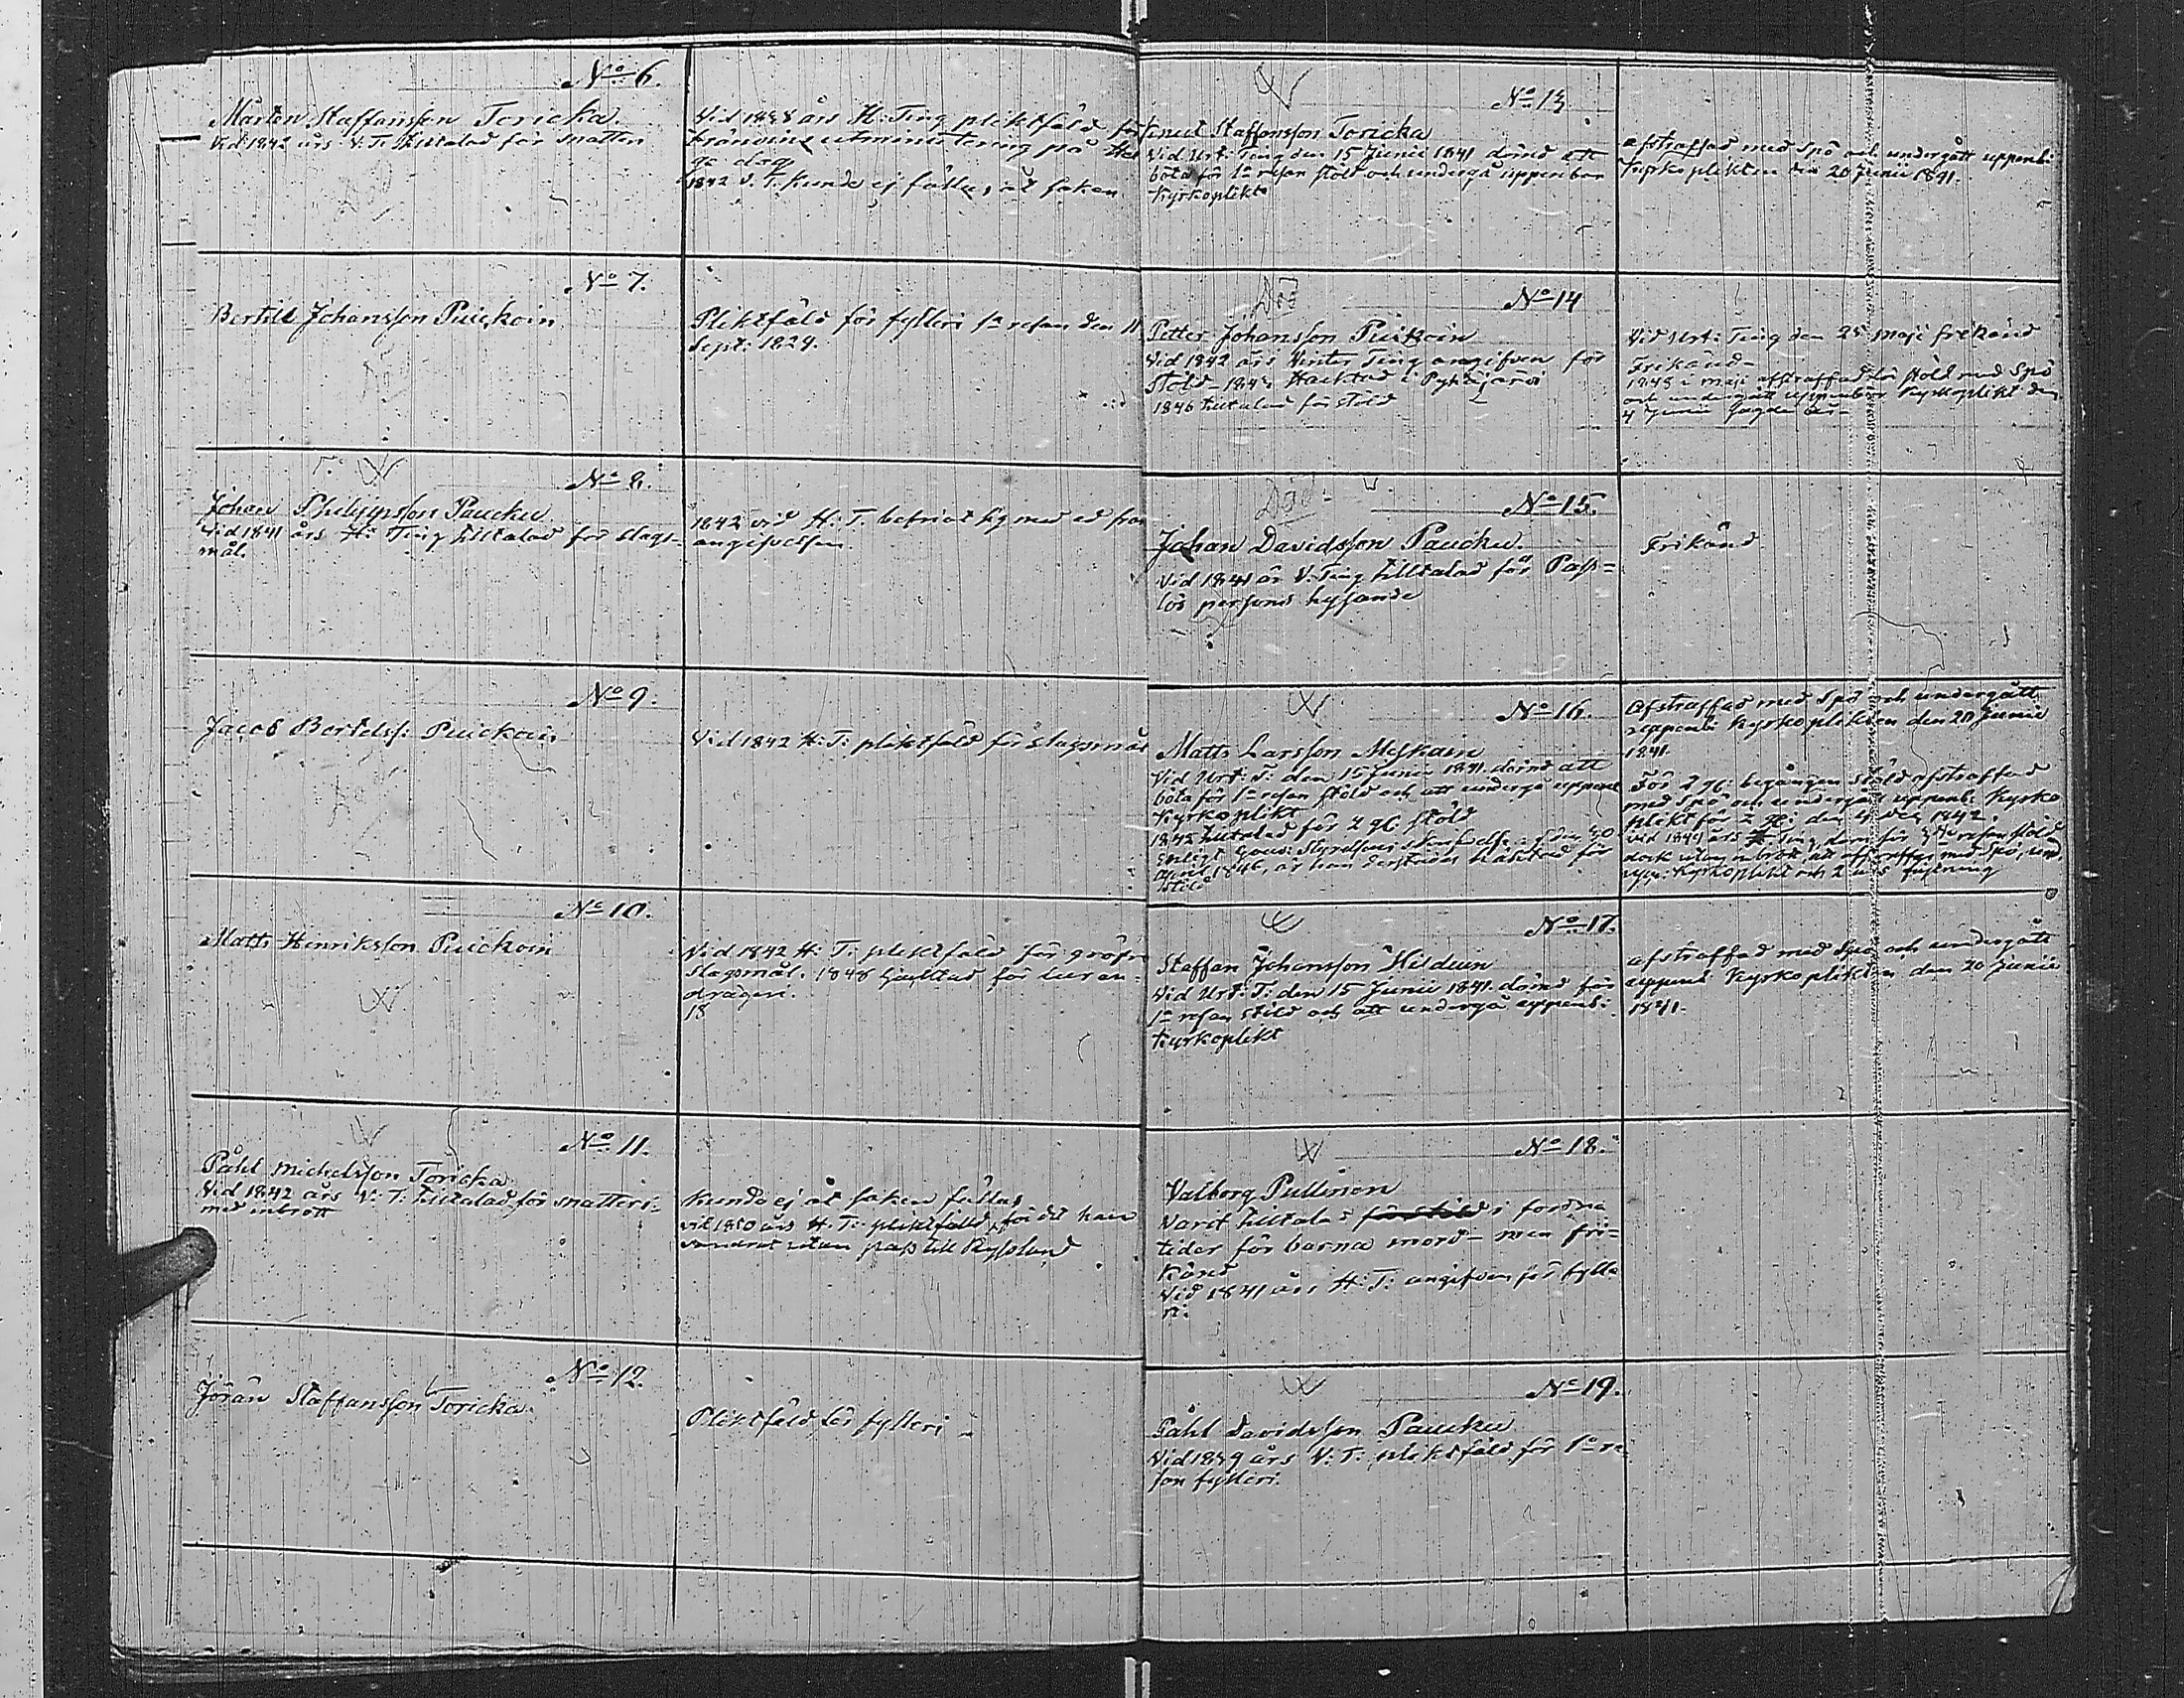 No 6.
Mårten Staffansson Toricka.
Vid 1842 års V. T. tilltalad för snatteri
Död
Vid 1838 års H: Ting pliktfäld för
bränvins utminutering på Hel
ge dag
1842 V. T. kunde ej fällas åt saken
No 7.
Bertill Johansson Puickoin
Död
Pliktfäld för fylleri 1a resan den 11
Sept: 1829.
No 8.
Johan Philippsson Paucku
Vid 1841 års H: Ting tilltalad för slags-
mål.
1842 vid H: T. befriat sig med ed från
angifvelsen.
No 9.
Jacob Bertelss: Puickoin
Död
Vid 1842 H: T: pliktfäld för slagsmål
No 10.
Matts Henriksson Puickoin
Vid 1842 H: T: pliktfäld för gröfre
slagsmål. 1848 häcktad för
drägeri.
18
No 11.
Påhl Michelsson Toricka
Vid 1842 års V: T: tilltalad för snatteri
med inbrott
Kunde ej åt saken fällas
vid 1850 års H. T: pliktfälld, för det han
vandrat utan pass till Ryssland
No 12.
Jöran Staffansson Toricka
Pliktfäld för fylleri
No 13
Staffansson Toricka
Vid Urt: Ting den 15 Junii 1841 dömd att
böta för 1a resan stöld och undergå uppenbar
Kyrkoplikt
afstraffad med Spö och undergått uppenb:
Kyrkoplikten den 20 Junii 1841.
No 14
Död
Petter Johansson Puickoin
Vid 1842 års Vinter Ting angifven för
Stöld 1843 Häcktad i Pyhäjärvi
1846 tilltalad för stöld
Vid Urt: Ting den 25 Maji frikänd
Frikänd
1845 i Maji afstraffad för stöld med Spö
och undergått uppenbar Kyrkoplikt den
4 Junii
No 15.
Död
Johan Davidsson Paucku.
Vid 1841 år V. Ting tilltalad för Pass=
lös persons hysande
Frikänd
No 16.
Matts Larsson Meskain
Vid Urt: T: den 15 Junii 1841. dömd att
böta för 1a resan stöld och att undergå uppenb
Kyrkoplikt
1842 tilltalad för 2 g: stöld
Enligt Gouv: Styrelsens skrifvelse af den 30
April 1846, är han derstädes häktad för
stöld
Afstraffad med Spö och undergått
uppenb: Kyrkoplikten den 20 Junii
1841.
För 2 g: begången stöld afstraffad
med Spö och undergått uppenb: Kyrko
plikt för 2 g: den 4 Dec 1842.
Vid 1844 års H. Ting, dömd för 3dje resan stöld
dock utan inbrott, att afstraffas med Spö, und.
upp: Kyrkoplikt och 2 års fästning
No 17.
Staffan Johansson Hilduin
Vid Urt: T: den 15 Junii 1841. dömd för
1a resan stöld och att undergå uppenb:
Kyrkoplikt
afstraffad med Spö och undergått
uppenb Kyrkoplikten den 20 Junii
1841.
No 18.
Valborg Pullinen
Varit tilltalad för stöld i fordna
tider för barna mord- men fri=
känd
Vid 1841 års H: T: angifven för fylle
ri:
No 19.
Påhl Davidsson Paucku
Vid 1839 års V: T: pliktfäld för 1a re
san fylleri.